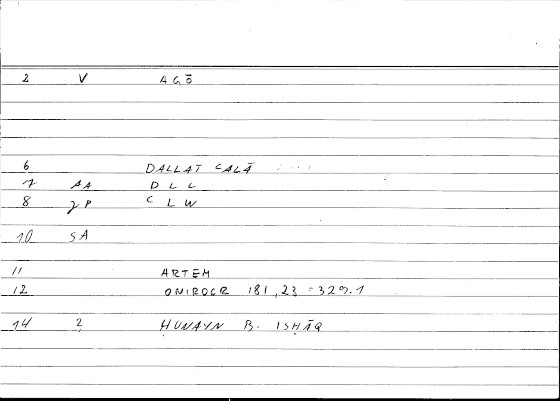 2 V AGŌ
6 DALLAT ʿALĀ
7 AA DLL
8 γP ʿLW
10 SA
11 ARTEM
12 ONIROCR 181,23 = 329.1
14 2 ḤUNAYN B. ISḤĀQ